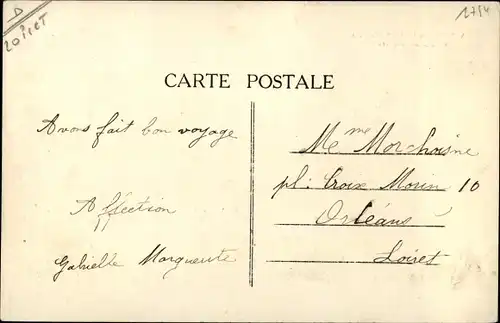 Loiret
1754
CARTE POSTALE
Avons fait bon voyage
Affection
Gabrielle Marguerite
Mme Morchoisne
pl: Croix Morin 10
Orléans
Loiret